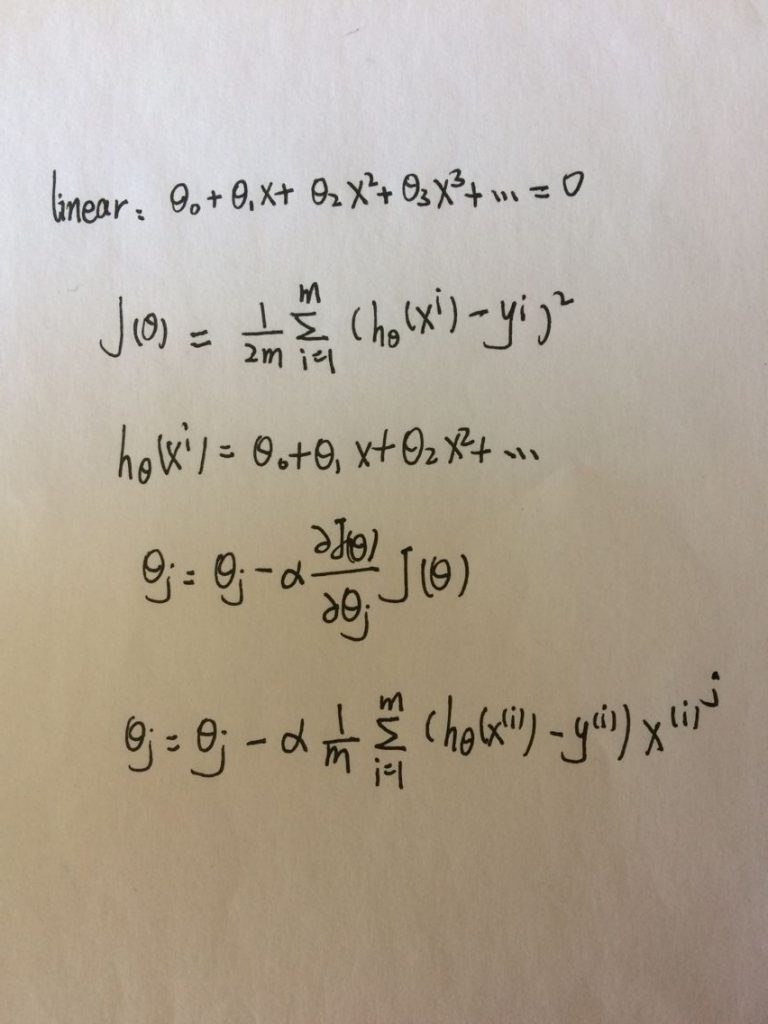 linear: θ₀ + θ₁x + θ₂x² + θ₃x³ + ... = 0
J(θ) = 1/2m Σ_{i=1}^{m} (h_θ(x^i) - y^i)²
h_θ(x^i) = θ₀ + θ₁x + θ₂x² + ...
θ_j = θ_j - α ∂J(θ)/∂θ_j J(θ)
θ_j = θ_j - α 1/m Σ_{i=1}^{m} (h_θ(x^{(i)}) - y^{(i)}) x^{(i)^j}